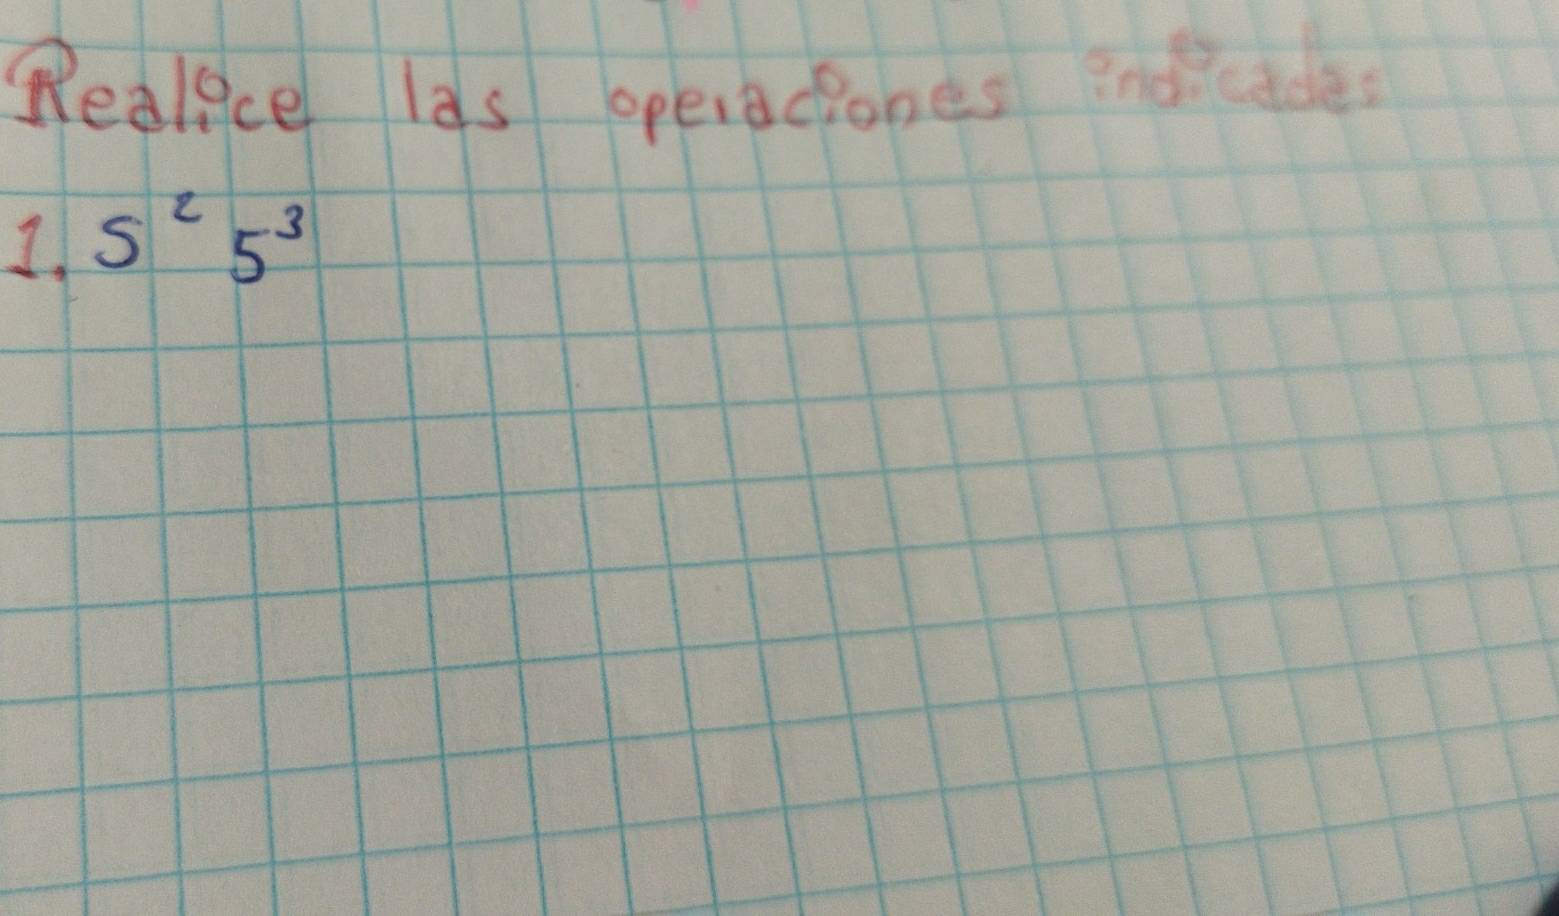 Realice las operaciones indicadas
1. 5² 5³